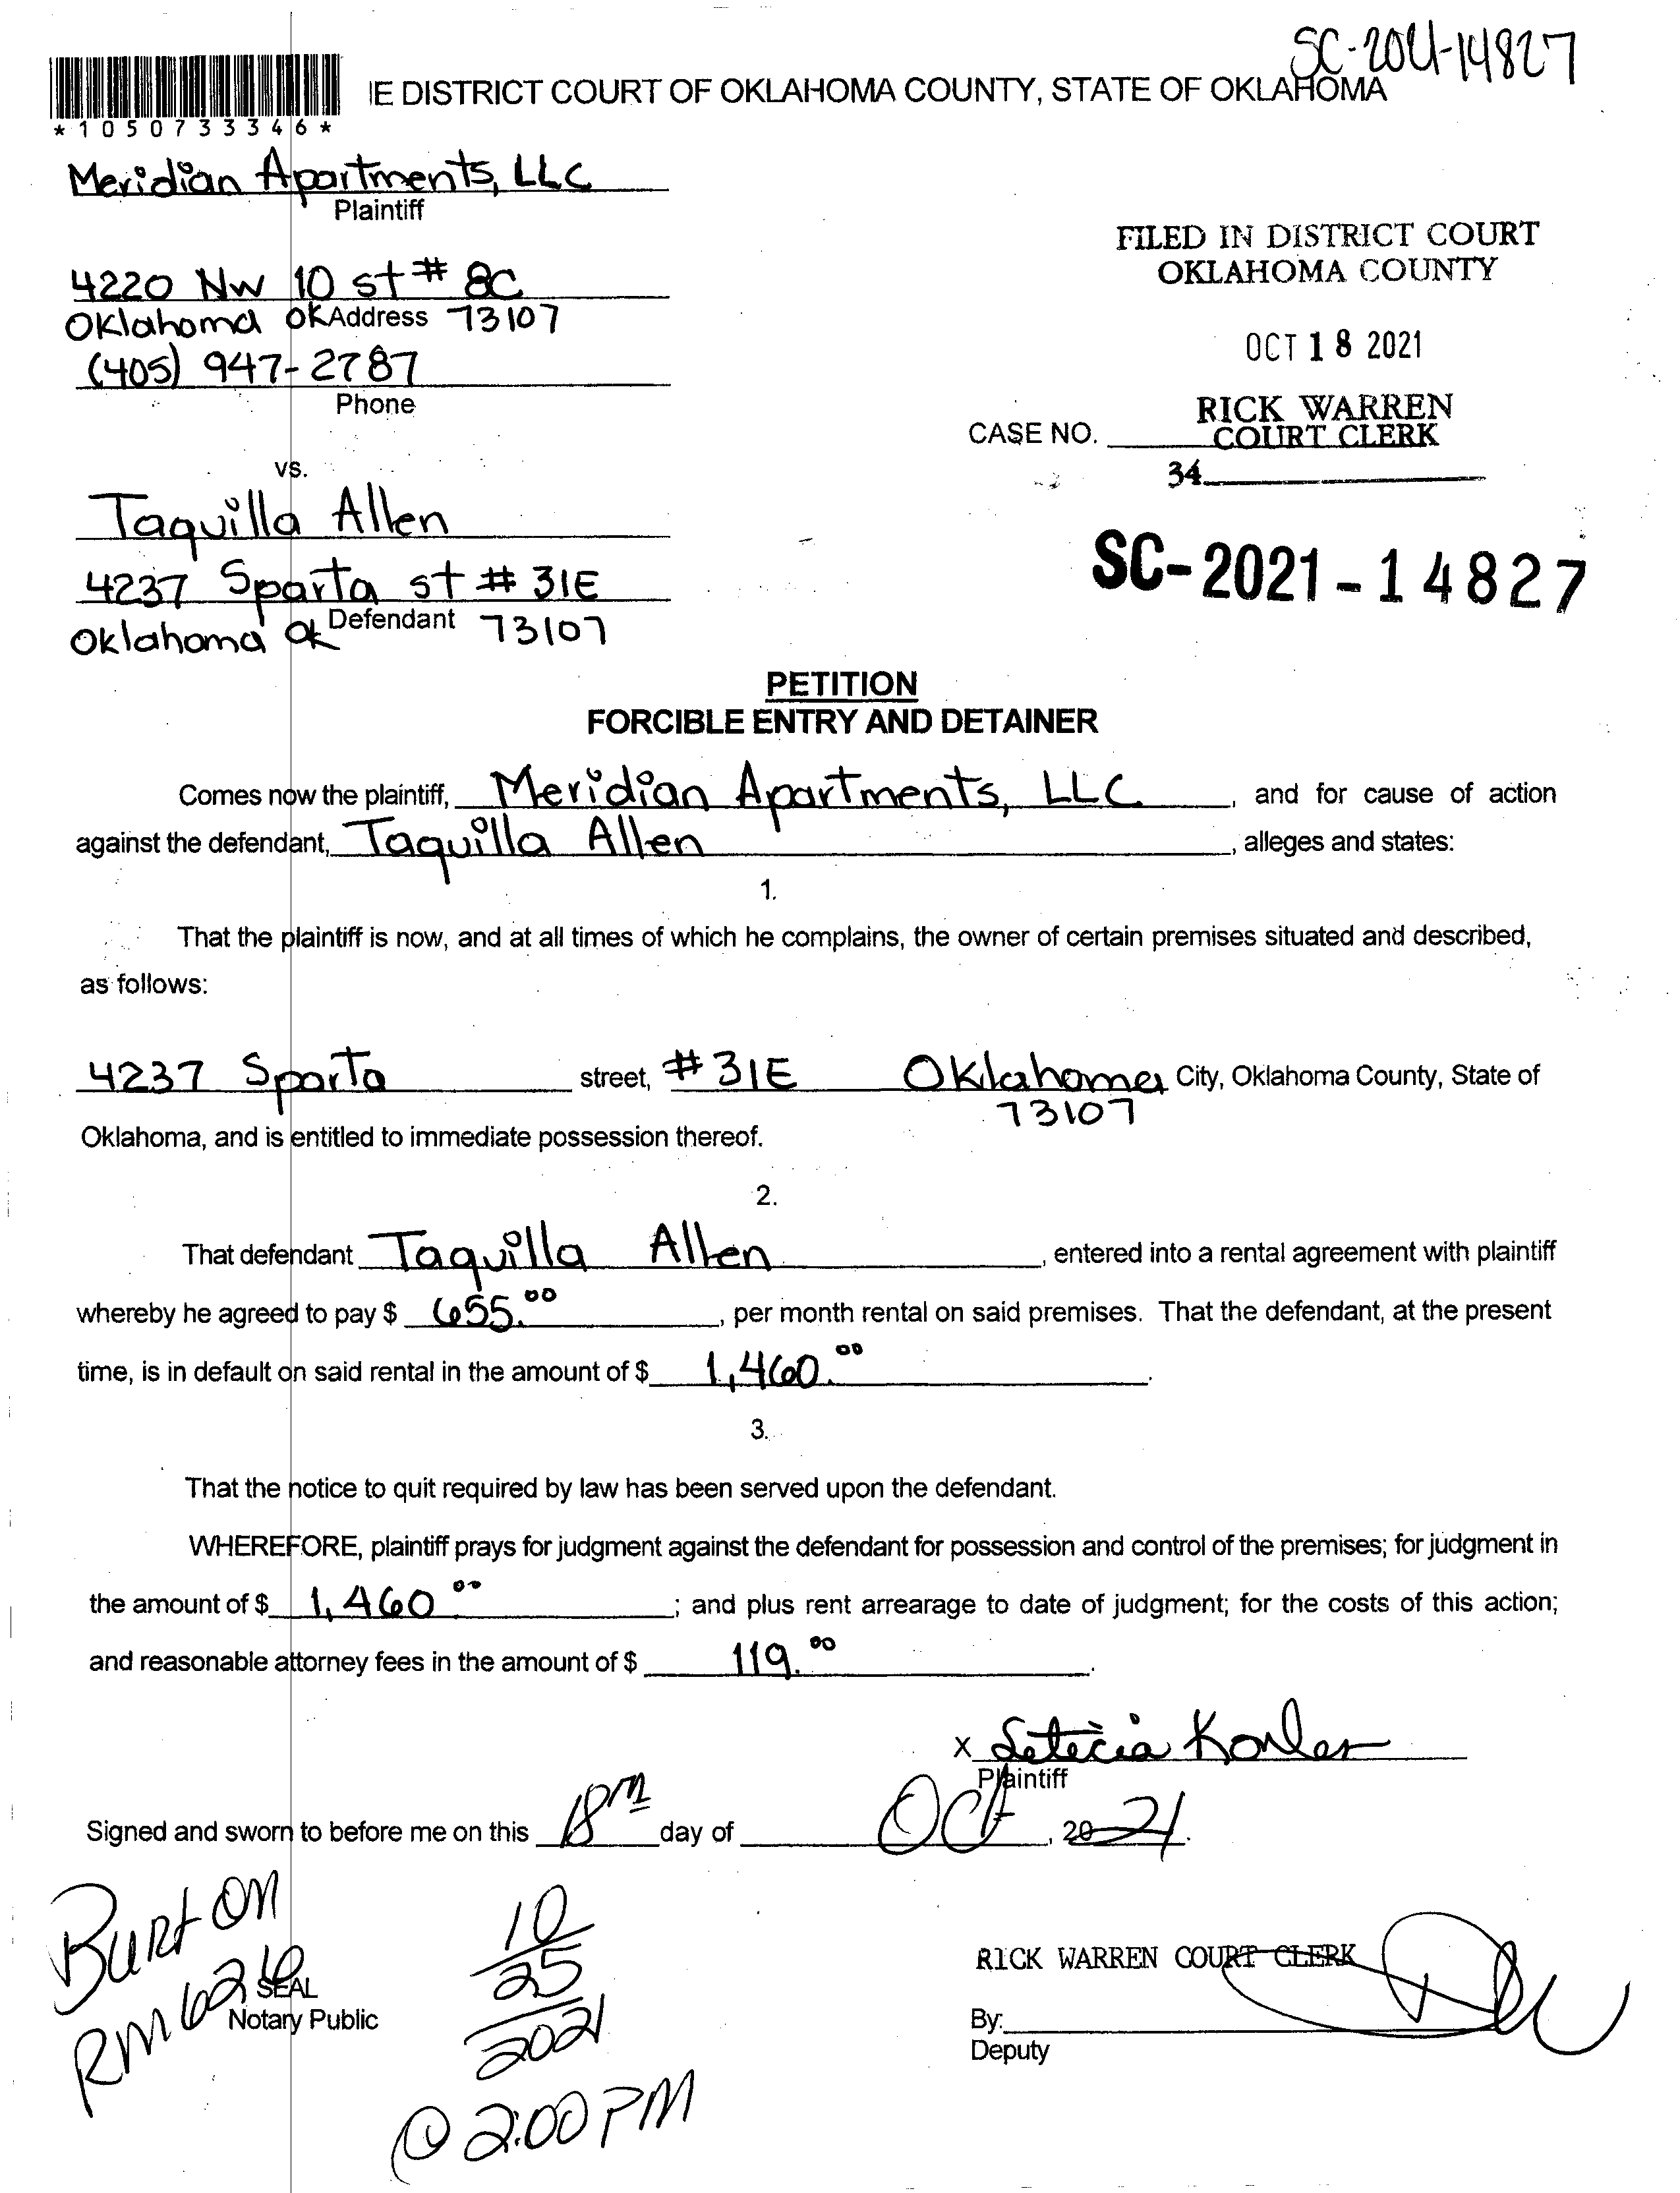 SC-2021-14827
IE DISTRICT COURT OF OKLAHOMA COUNTY, STATE OF OKLAHOMA
*1050733346*
Meridian Apartments, LLC
Plaintiff
FILED IN DISTRICT COURT
OKLAHOMA COUNTY
4220 NW 10 st # 8C
Oklahoma OK Address 73107
OCT 18 2021
(405) 947-2787
Phone
RICK WARREN
CASE NO. COURT CLERK
34
vs.
Taquilla Allen
4237 Sparta st # 31E
Defendant
Oklahoma Ok 73107
SC-2021-14827
PETITION
FORCIBLE ENTRY AND DETAINER
Comes now the plaintiff, Meridian Apartments, LLC, and for cause of action
against the defendant, Taquilla Allen, alleges and states:
1.
That the plaintiff is now, and at all times of which he complains, the owner of certain premises situated and described,
as follows:
4237 Sparta street, #31E Oklahoma City, Oklahoma County, State of
73107
Oklahoma, and is entitled to immediate possession thereof.
2.
That defendant Taquilla Allen, entered into a rental agreement with plaintiff
whereby he agreed to pay $ 655.00, per month rental on said premises. That the defendant, at the present
time, is in default on said rental in the amount of $ 1,460.00.
3.
That the notice to quit required by law has been served upon the defendant.
WHEREFORE, plaintiff prays for judgment against the defendant for possession and control of the premises; for judgment in
the amount of $ 1,460.00; and plus rent arrearage to date of judgment; for the costs of this action;
and reasonable attorney fees in the amount of $ 119.00.
X Leticia
Plaintiff
Signed and sworn to before me on this 18th day of Oct, 2021.
Burton
Rm 626
SEAL
Notary Public
10
25
2021
@ 2:00 PM
RICK WARREN COURT CLERK
By:
Deputy